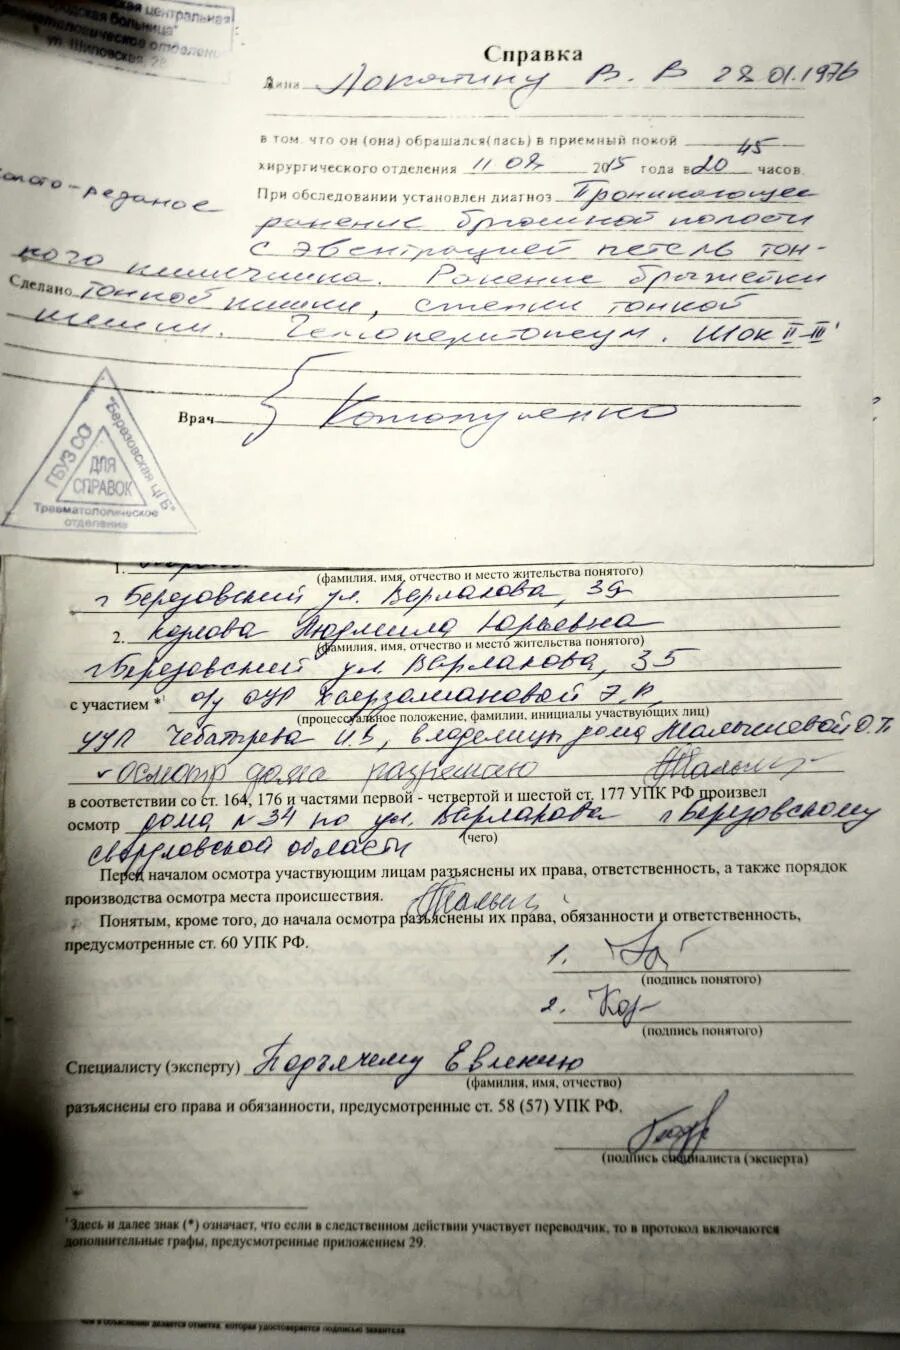 центральная
городская больница"
травматологическое отделение
ул. Шиловская, 28
Справка
Дана Локотину В. В 28 01.1976
в том, что он (она) обращался(лась) в приемный покой 45
хирургического отделения 11 08 2015 года в 20 часов.
колото-резаное
При обследовании установлен диагноз Проникающее
ранение брюшной полости
с эвентрацией петель тон-
кого кишечника. Ранение брыжейки
Сделано тонкой кишки, стенки тонкой
кишки. Гемоперитонеум. Шок II-III
Врач
ГБУЗ СО "Березовская ЦГБ"
ДЛЯ
СПРАВОК
Травматологическое
отделение
1.
(фамилия, имя, отчество и место жительства понятого)
г Березовский ул. Варлакова, 39
2. Козлова Людмила Юрьевна
(фамилия, имя, отчество и место жительства понятого)
г. Березовский ул. Варлакова, 35
с участием *¹ о/у ОУР Э.Р,
(процессуальное положение, фамилии, инициалы участвующих лиц)
УУП И.В, владелицы дома Малышевой О.П
осмотр дома разрешаю
в соответствии со ст. 164, 176 и частями первой - четвертой и шестой ст. 177 УПК РФ произвел
осмотр дома № 34 по ул. Варлакова г Березовскому
(чего)
Свердловской области
Перед началом осмотра участвующим лицам разъяснены их права, ответственность, а также порядок
производства осмотра места происшествия.
Понятым, кроме того, до начала осмотра разъяснены их права, обязанности и ответственность,
предусмотренные ст. 60 УПК РФ.
1.
(подпись понятого)
2. Коз
(подпись понятого)
Специалисту (эксперту) Подъячему Евгению
(фамилия, имя, отчество)
разъяснены его права и обязанности, предусмотренные ст. 58 (57) УПК РФ.
(подпись специалиста (эксперта)
¹Здесь и далее знак (*) означает, что если в следственном действии участвует переводчик, то в протокол включаются
дополнительные графы, предусмотренные приложением 29.
чем в объяснении делается отметка, которая удостоверяется подписью заявителя